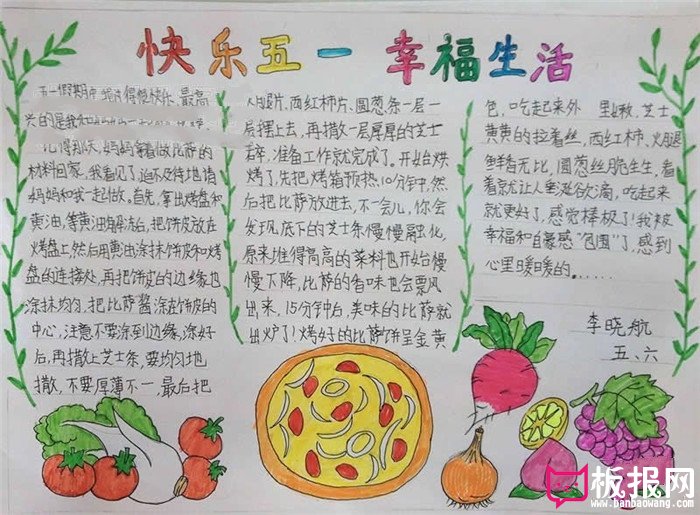 快乐五一 幸福生活
五一假期中 我过得很快乐,最高
兴的是我
记得那天,妈妈拿着做比萨的
材料回家,我看见了迫不及待地请
妈妈和我一起做,首先,拿出烤盘和
黄油,等黄油解冻后,把饼皮放在
烤盘上,然后用黄油涂抹饼皮和烤
盘的连接处,再把饼皮的边缘也
涂抹均匀,把比萨酱涂在饼皮的
中心,注意不要涂到边缘,涂好
后,再撒上芝士条,要均匀地
撒,不要厚薄不一,最后把
火腿片,西红柿片、圆葱条一层一
层摆上去,再撒一层厚厚的芝士
碎,准备工作就完成了。开始烘
烤了,先把烤箱预热10分钟,然
后把比萨放进去,不一会儿,你会
发现,底下的芝士条慢慢融化,
原来堆得高高的菜料也开始慢
慢下降,比萨的香味也会要风
出来,15分钟后,美味的比萨就
出炉了!烤好的比萨饼呈金黄
色,吃起来外 里嫩,芝士
黄黄的拉着丝,西红柿、火腿
鲜香无比,圆葱丝脆生生,看
着就让人垂涎欲滴,吃起来
就更好了,感觉棒极了!我被
幸福和自豪感“包围”了,感到
心里暖暖的……
李晓航
五、六
板报网
www.banbaowang.com